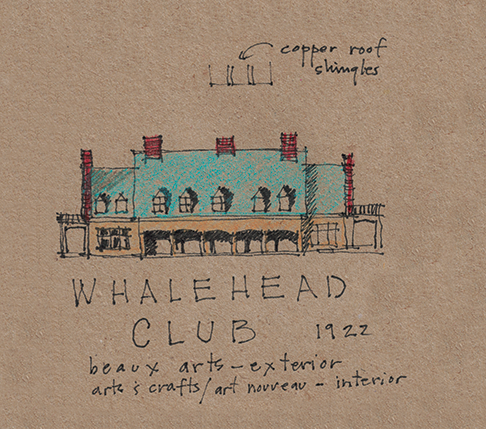 copper roof
shingles
WHALEHEAD
CLUB 1922
beaux arts - exterior
arts & crafts/art nouveau - interior